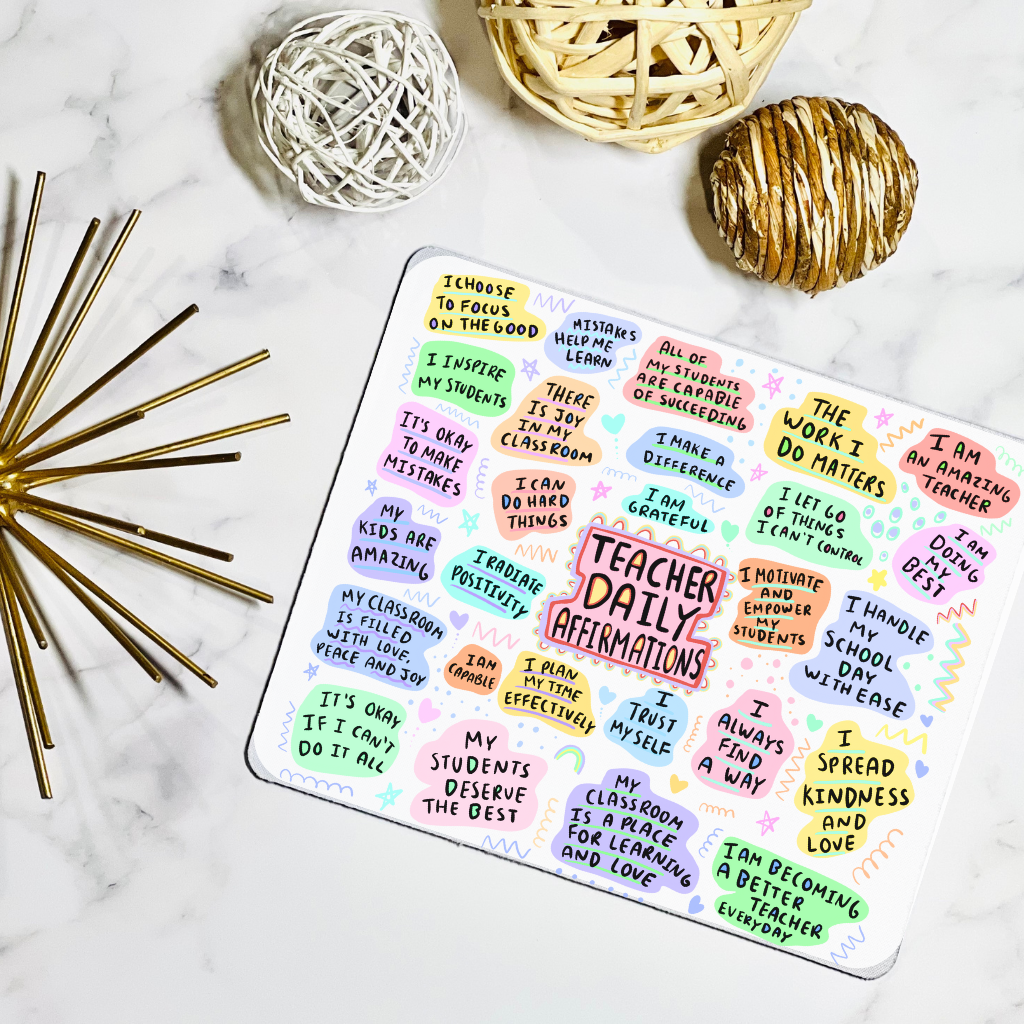 I CHOOSE
TO FOCUS
ON THE GOOD
MISTAKES
HELP ME
LEARN
ALL OF
MY STUDENTS
ARE CAPABLE
OF SUCCEEDING
I INSPIRE
MY STUDENTS
THERE
IS JOY
IN MY
CLASSROOM
THE
WORK I
DO MATTERS
I AM
AN AMAZING
TEACHER
IT'S OKAY
TO MAKE
MISTAKES
I MAKE A
DIFFERENCE
I CAN
DO HARD
THINGS
I AM
GRATEFUL
I LET GO
OF THINGS
I CAN'T CONTROL
I AM
DOING
MY
BEST
MY
KIDS ARE
AMAZING
I RADIATE
POSITIVITY
TEACHER
DAILY
AFFIRMATIONS
I MOTIVATE
AND
EMPOWER
MY
STUDENTS
I HANDLE
MY
SCHOOL
DAY
WITH EASE
MY CLASSROOM
IS FILLED
WITH LOVE,
PEACE AND JOY
I AM
CAPABLE
I PLAN
MY TIME
EFFECTIVELY
I
TRUST
MYSELF
I
ALWAYS
FIND
A WAY
I
SPREAD
KINDNESS
AND
LOVE
IT'S OKAY
IF I CAN'T
DO IT ALL
MY
STUDENTS
DESERVE
THE BEST
MY
CLASSROOM
IS A PLACE
FOR LEARNING
AND LOVE
I AM BECOMING
A BETTER
TEACHER
EVERYDAY